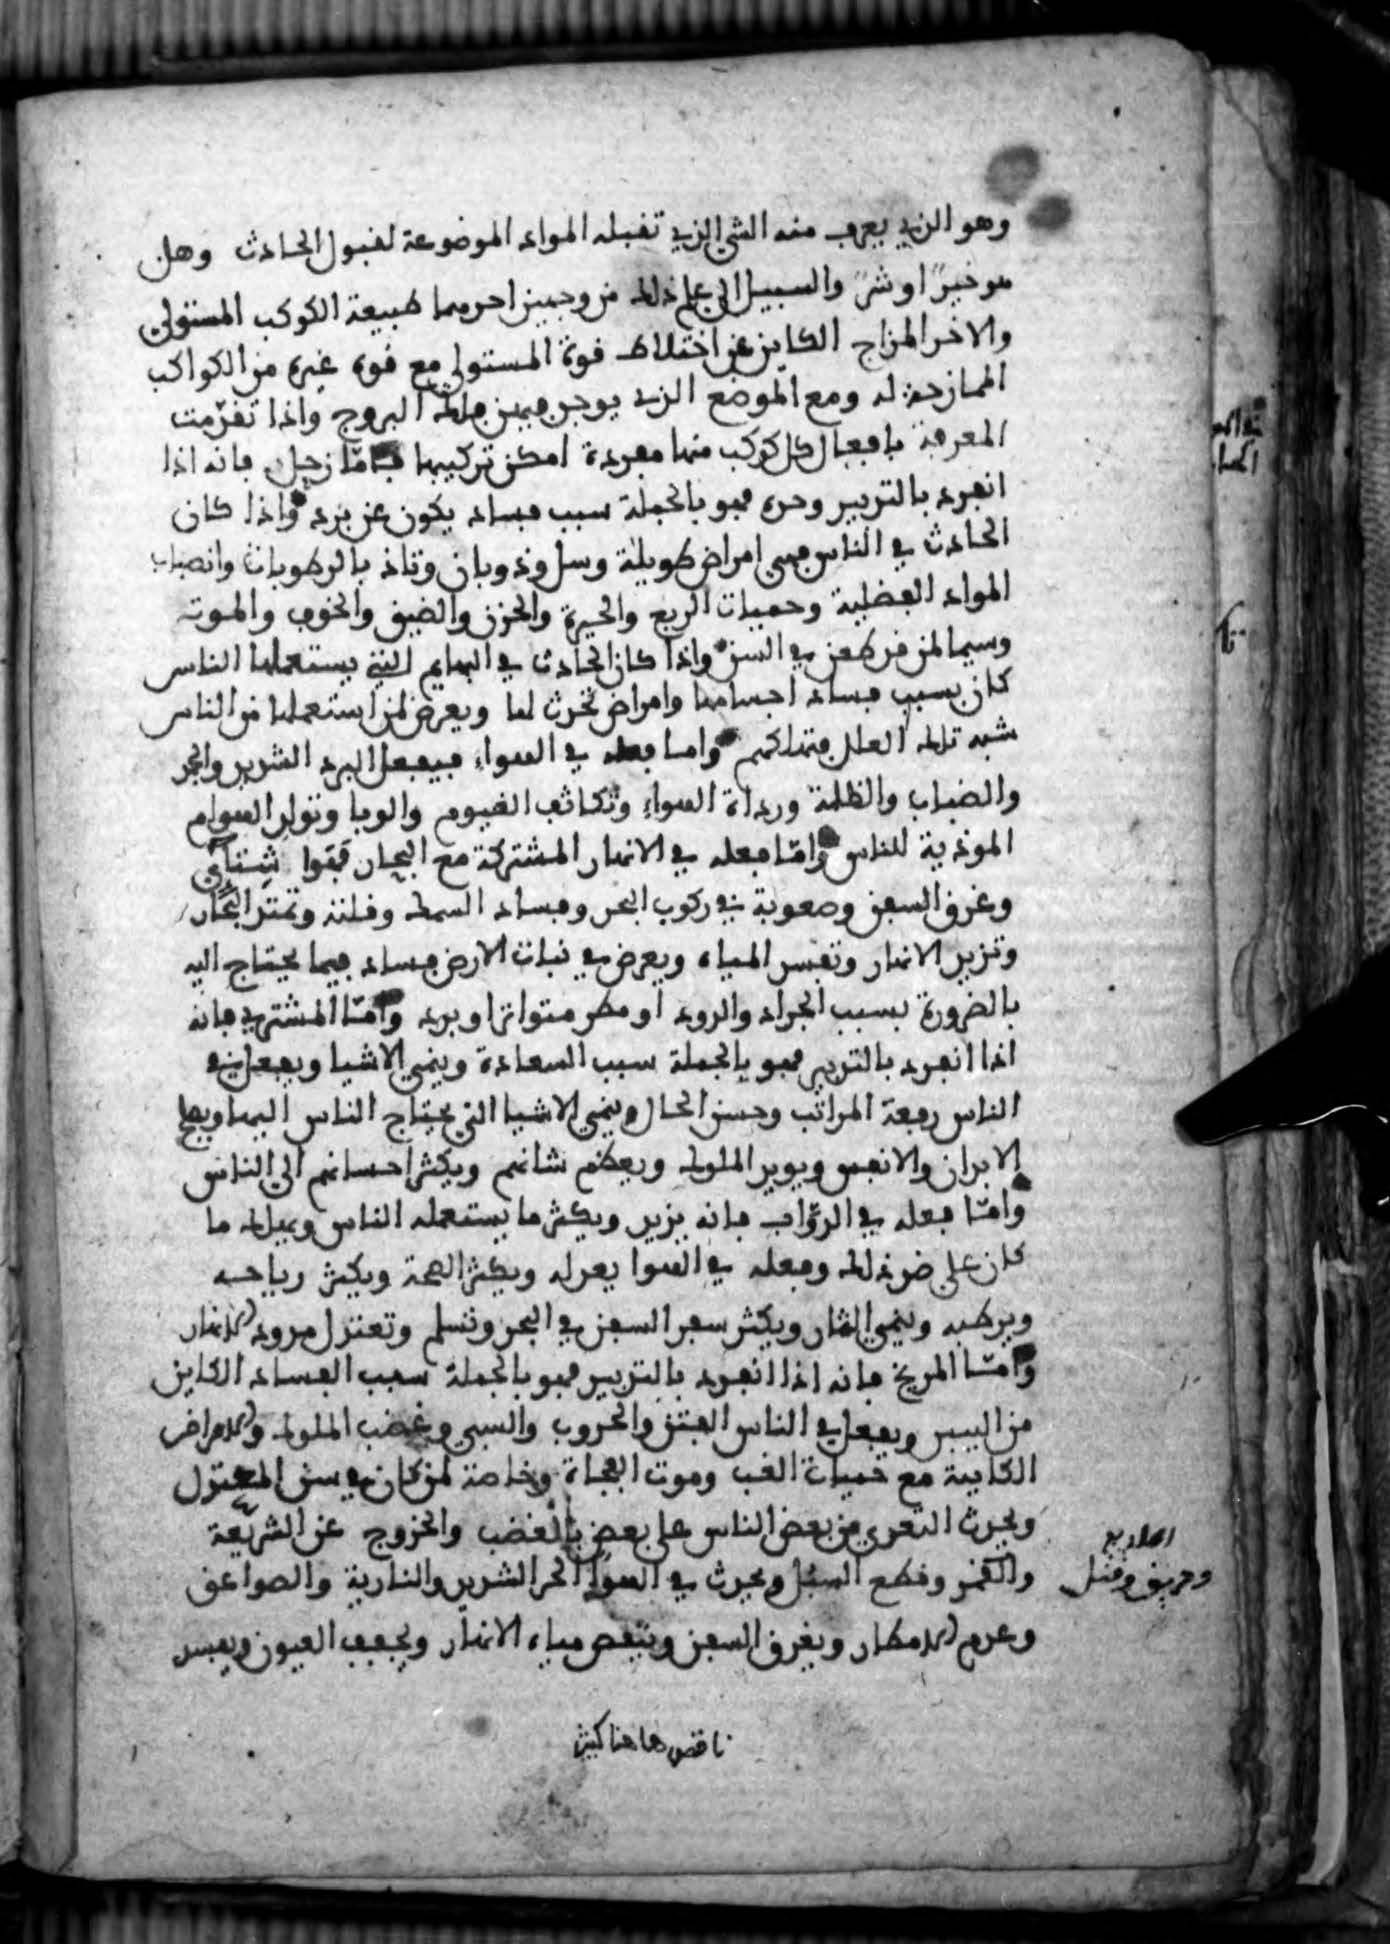 وهو الذي يعرف منه الشي الذي تقبله المواد الموضوعة لقبول الحادث وهل
هو خيرًا او شرً والسبيل الى علم ذلك من وجهين احدهما طبيعة الكوكب المستولي
والاخر المزاج الكاين عن اختلاط قوة المستولي مع قوة غيره من الكواكب
الممازجة له ومع الموضع الذي يوجد فيه من فلك البروج واذا تقدّمت
المعرفة بافعال كل كوكب منها مفردة امكن تركيبها فامّا زحل فانه اذا
انفرد بالتدبير وحده فهو بالجملة سبب فساد يكون عن برد واذا كان
الحادث في الناس فهي امراض طويلة وسل وذوبان وتاذ بالرطوبات وانصباب
المواد الفضلية وحميات الربع والحيرة والحزن والضيق والخوف والموت
وسيما لمن قد طعن في السن واذا كان الحادث في البهايم التي يستعملها الناس
كان بسبب فساد اجسامها وامراض تحدث لها ويعرض لمن استعملها من الناس
شبه تلك العلل فتهلكهم واما فعله في الهواء فيفعل البرد الشديد والجر
والضباب والظلمة ورداة الهواء وتكاثف الغيوم والوبا وتولد الهوام
الموذية للناس وامّا فعله في الانهار المشتركة مع البحار فقوا شتاي
وغرق السفن وصعوبة في ركوب البحر وفساد السمك وقلته وتمتد البحار
وتزيد الانهار وتفسد المياه ويعرض في نبات الارض فساد فيما يحتاج اليه
بالضرورة بسبب الجراد والدود او مطر متواترا وبرد وامّا المشتري فانه
اذا انفرد بالتدبير فهو بالجملة سبب السعادة وينمي الاشيا ويفعل في
الناس رفعة المراتب وحسن الحال وينمي الاشيا التي يحتاج الناس اليها ويصلح
الابدان والانفس ويويد الملوك ويعظم شانهم ويكثر احسانهم الى الناس
وامّا فعله في الدوّاب فانه يزيد ويكثر ما يستعمله الناس ويهلك ما
كان على ضد ذلك وفعله في الهوا يعدله ويكثر الصحة ويكثر رياحه
ويرطبه وينمي الثمار ويكثر سفر السفن في البحر وتسلم وتعتدل مدود الانهار
وامّا المريخ فانه اذا انفرد بالتدبير فهو بالجملة سبب الفساد الكاين
من اليبس ويفعل في الناس الفتن والحروب والسبي وغضب الملوك والامراض
الكاينة مع حميات الغب وموت الفجاة وخاصة لمن كان في سن المعتول
ويحدث التعدي من بعض الناس على بعض بالغضب والخروج عن الشريعة
والقهر وقطع السبل ويحدث في الهواء الحر الشديد والنارية والصواعق
وحريق وقتل
وعدم الامطار ويغرق السفن وينقص مياه الانهار ويجفف العيون ويفسد
ناقص هاهنا كثير